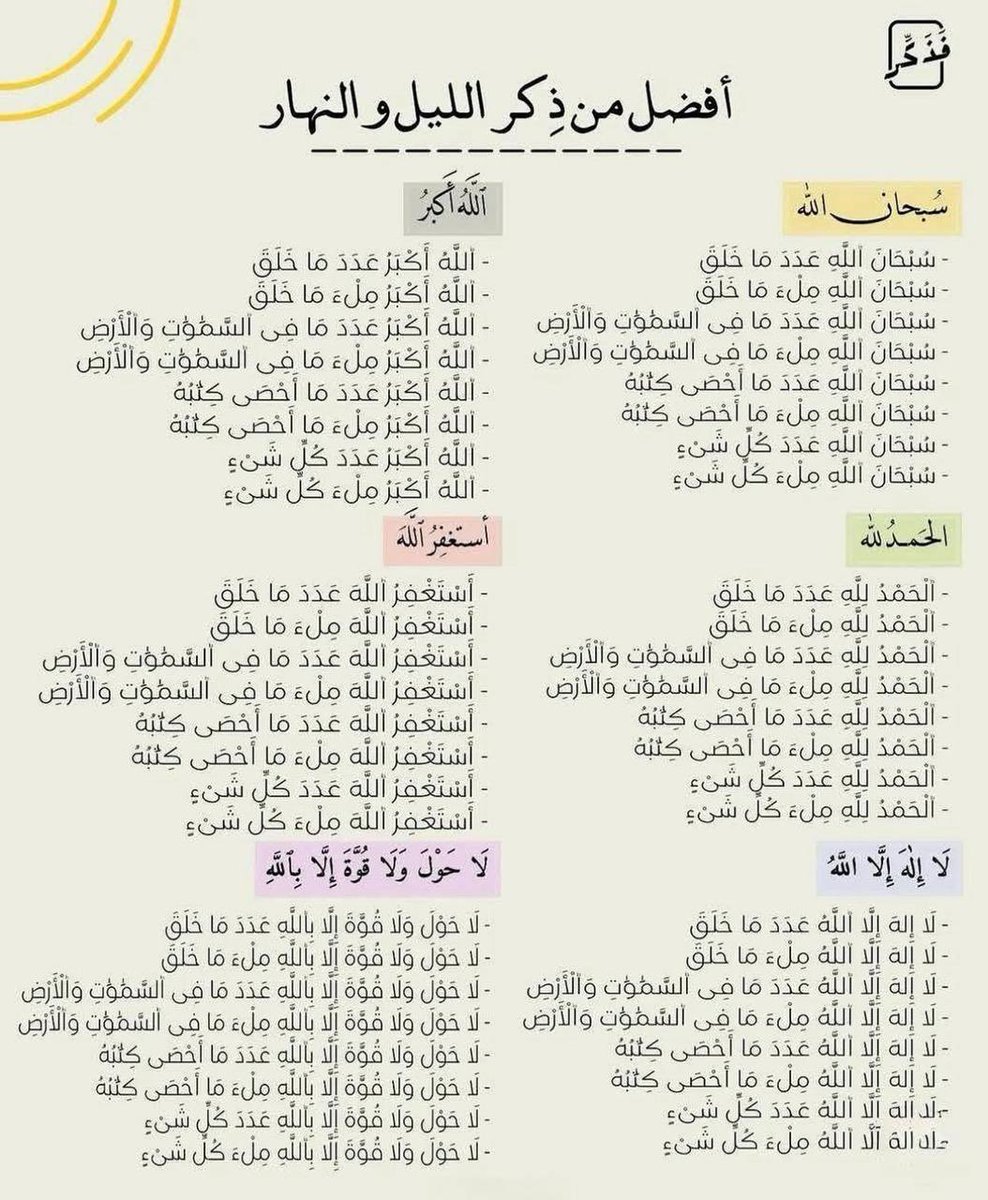 فَذَكِّر
أفضل من ذِكر الليل و النهار
سُبحان الله
- سُبْحَانَ ٱللَّهِ عَدَدَ مَا خَلَقَ
- سُبْحَانَ ٱللَّهِ مِلْءَ مَا خَلَقَ
- سُبْحَانَ ٱللَّهِ عَدَدَ مَا فِى ٱلسَّمَٰوَٰتِ وَٱلْأَرْضِ
- سُبْحَانَ ٱللَّهِ مِلْءَ مَا فِى ٱلسَّمَٰوَٰتِ وَٱلْأَرْضِ
- سُبْحَانَ ٱللَّهِ عَدَدَ مَا أَحْصَى كِتَٰبُهُ
- سُبْحَانَ ٱللَّهِ مِلْءَ مَا أَحْصَى كِتَٰبُهُ
- سُبْحَانَ ٱللَّهِ عَدَدَ كُلِّ شَىْءٍ
- سُبْحَانَ ٱللَّهِ مِلْءَ كُلِّ شَىْءٍ
ٱللَّهُ أَكبرُ
- ٱللَّهُ أَكْبَرُ عَدَدَ مَا خَلَقَ
- ٱللَّهُ أَكْبَرُ مِلْءَ مَا خَلَقَ
- ٱللَّهُ أَكْبَرُ عَدَدَ مَا فِى ٱلسَّمَٰوَٰتِ وَٱلْأَرْضِ
- ٱللَّهُ أَكْبَرُ مِلْءَ مَا فِى ٱلسَّمَٰوَٰتِ وَٱلْأَرْضِ
- ٱللَّهُ أَكْبَرُ عَدَدَ مَا أَحْصَى كِتَٰبُهُ
- ٱللَّهُ أَكْبَرُ مِلْءَ مَا أَحْصَى كِتَٰبُهُ
- ٱللَّهُ أَكْبَرُ عَدَدَ كُلِّ شَىْءٍ
- ٱللَّهُ أَكْبَرُ مِلْءَ كُلِّ شَىْءٍ
الحَمدُ لله
- ٱلْحَمْدُ لِلَّهِ عَدَدَ مَا خَلَقَ
- ٱلْحَمْدُ لِلَّهِ مِلْءَ مَا خَلَقَ
- ٱلْحَمْدُ لِلَّهِ عَدَدَ مَا فِى ٱلسَّمَٰوَٰتِ وَٱلْأَرْضِ
- ٱلْحَمْدُ لِلَّهِ مِلْءَ مَا فِى ٱلسَّمَٰوَٰتِ وَٱلْأَرْضِ
- ٱلْحَمْدُ لِلَّهِ عَدَدَ مَا أَحْصَى كِتَٰبُهُ
- ٱلْحَمْدُ لِلَّهِ مِلْءَ مَا أَحْصَى كِتَٰبُهُ
- ٱلْحَمْدُ لِلَّهِ عَدَدَ كُلِّ شَىْءٍ
- ٱلْحَمْدُ لِلَّهِ مِلْءَ كُلِّ شَىْءٍ
أستغفِرُ ٱللَّهَ
- أَسْتَغْفِرُ ٱللَّهَ عَدَدَ مَا خَلَقَ
- أَسْتَغْفِرُ ٱللَّهَ مِلْءَ مَا خَلَقَ
- أَسْتَغْفِرُ ٱللَّهَ عَدَدَ مَا فِى ٱلسَّمَٰوَٰتِ وَٱلْأَرْضِ
- أَسْتَغْفِرُ ٱللَّهَ مِلْءَ مَا فِى ٱلسَّمَٰوَٰتِ وَٱلْأَرْضِ
- أَسْتَغْفِرُ ٱللَّهَ عَدَدَ مَا أَحْصَى كِتَٰبُهُ
- أَسْتَغْفِرُ ٱللَّهَ مِلْءَ مَا أَحْصَى كِتَٰبُهُ
- أَسْتَغْفِرُ ٱللَّهَ عَدَدَ كُلِّ شَىْءٍ
- أَسْتَغْفِرُ ٱللَّهَ مِلْءَ كُلِّ شَىْءٍ
لَا إِلَٰهَ إِلَّا اللَّهُ
- لَا إِلهَ إِلَّا ٱللَّهُ عَدَدَ مَا خَلَقَ
- لَا إِلهَ إِلَّا ٱللَّهُ مِلْءَ مَا خَلَقَ
- لَا إِلهَ إِلَّا ٱللَّهُ عَدَدَ مَا فِى ٱلسَّمَٰوَٰتِ وَٱلْأَرْضِ
- لَا إِلهَ إِلَّا ٱللَّهُ مِلْءَ مَا فِى ٱلسَّمَٰوَٰتِ وَٱلْأَرْضِ
- لَا إِلهَ إِلَّا ٱللَّهُ عَدَدَ مَا أَحْصَى كِتَٰبُهُ
- لَا إِلهَ إِلَّا ٱللَّهُ مِلْءَ مَا أَحْصَى كِتَٰبُهُ
- لَا إِلهَ إِلَّا ٱللَّهُ عَدَدَ كُلِّ شَىْءٍ
- لَا إِلهَ إِلَّا ٱللَّهُ مِلْءَ كُلِّ شَىْءٍ
لَا حَوْلَ وَلَا قُوَّةَ إِلَّا بِٱللَّهِ
- لَا حَوْلَ وَلَا قُوَّةَ إِلَّا بِٱللَّهِ عَدَدَ مَا خَلَقَ
- لَا حَوْلَ وَلَا قُوَّةَ إِلَّا بِٱللَّهِ مِلْءَ مَا خَلَقَ
- لَا حَوْلَ وَلَا قُوَّةَ إِلَّا بِٱللَّهِ عَدَدَ مَا فِى ٱلسَّمَٰوَٰتِ وَٱلْأَرْضِ
- لَا حَوْلَ وَلَا قُوَّةَ إِلَّا بِٱللَّهِ مِلْءَ مَا فِى ٱلسَّمَٰوَٰتِ وَٱلْأَرْضِ
- لَا حَوْلَ وَلَا قُوَّةَ إِلَّا بِٱللَّهِ عَدَدَ مَا أَحْصَى كِتَٰبُهُ
- لَا حَوْلَ وَلَا قُوَّةَ إِلَّا بِٱللَّهِ مِلْءَ مَا أَحْصَى كِتَٰبُهُ
- لَا حَوْلَ وَلَا قُوَّةَ إِلَّا بِٱللَّهِ عَدَدَ كُلِّ شَىْءٍ
- لَا حَوْلَ وَلَا قُوَّةَ إِلَّا بِٱللَّهِ مِلْءَ كُلِّ شَىْءٍ